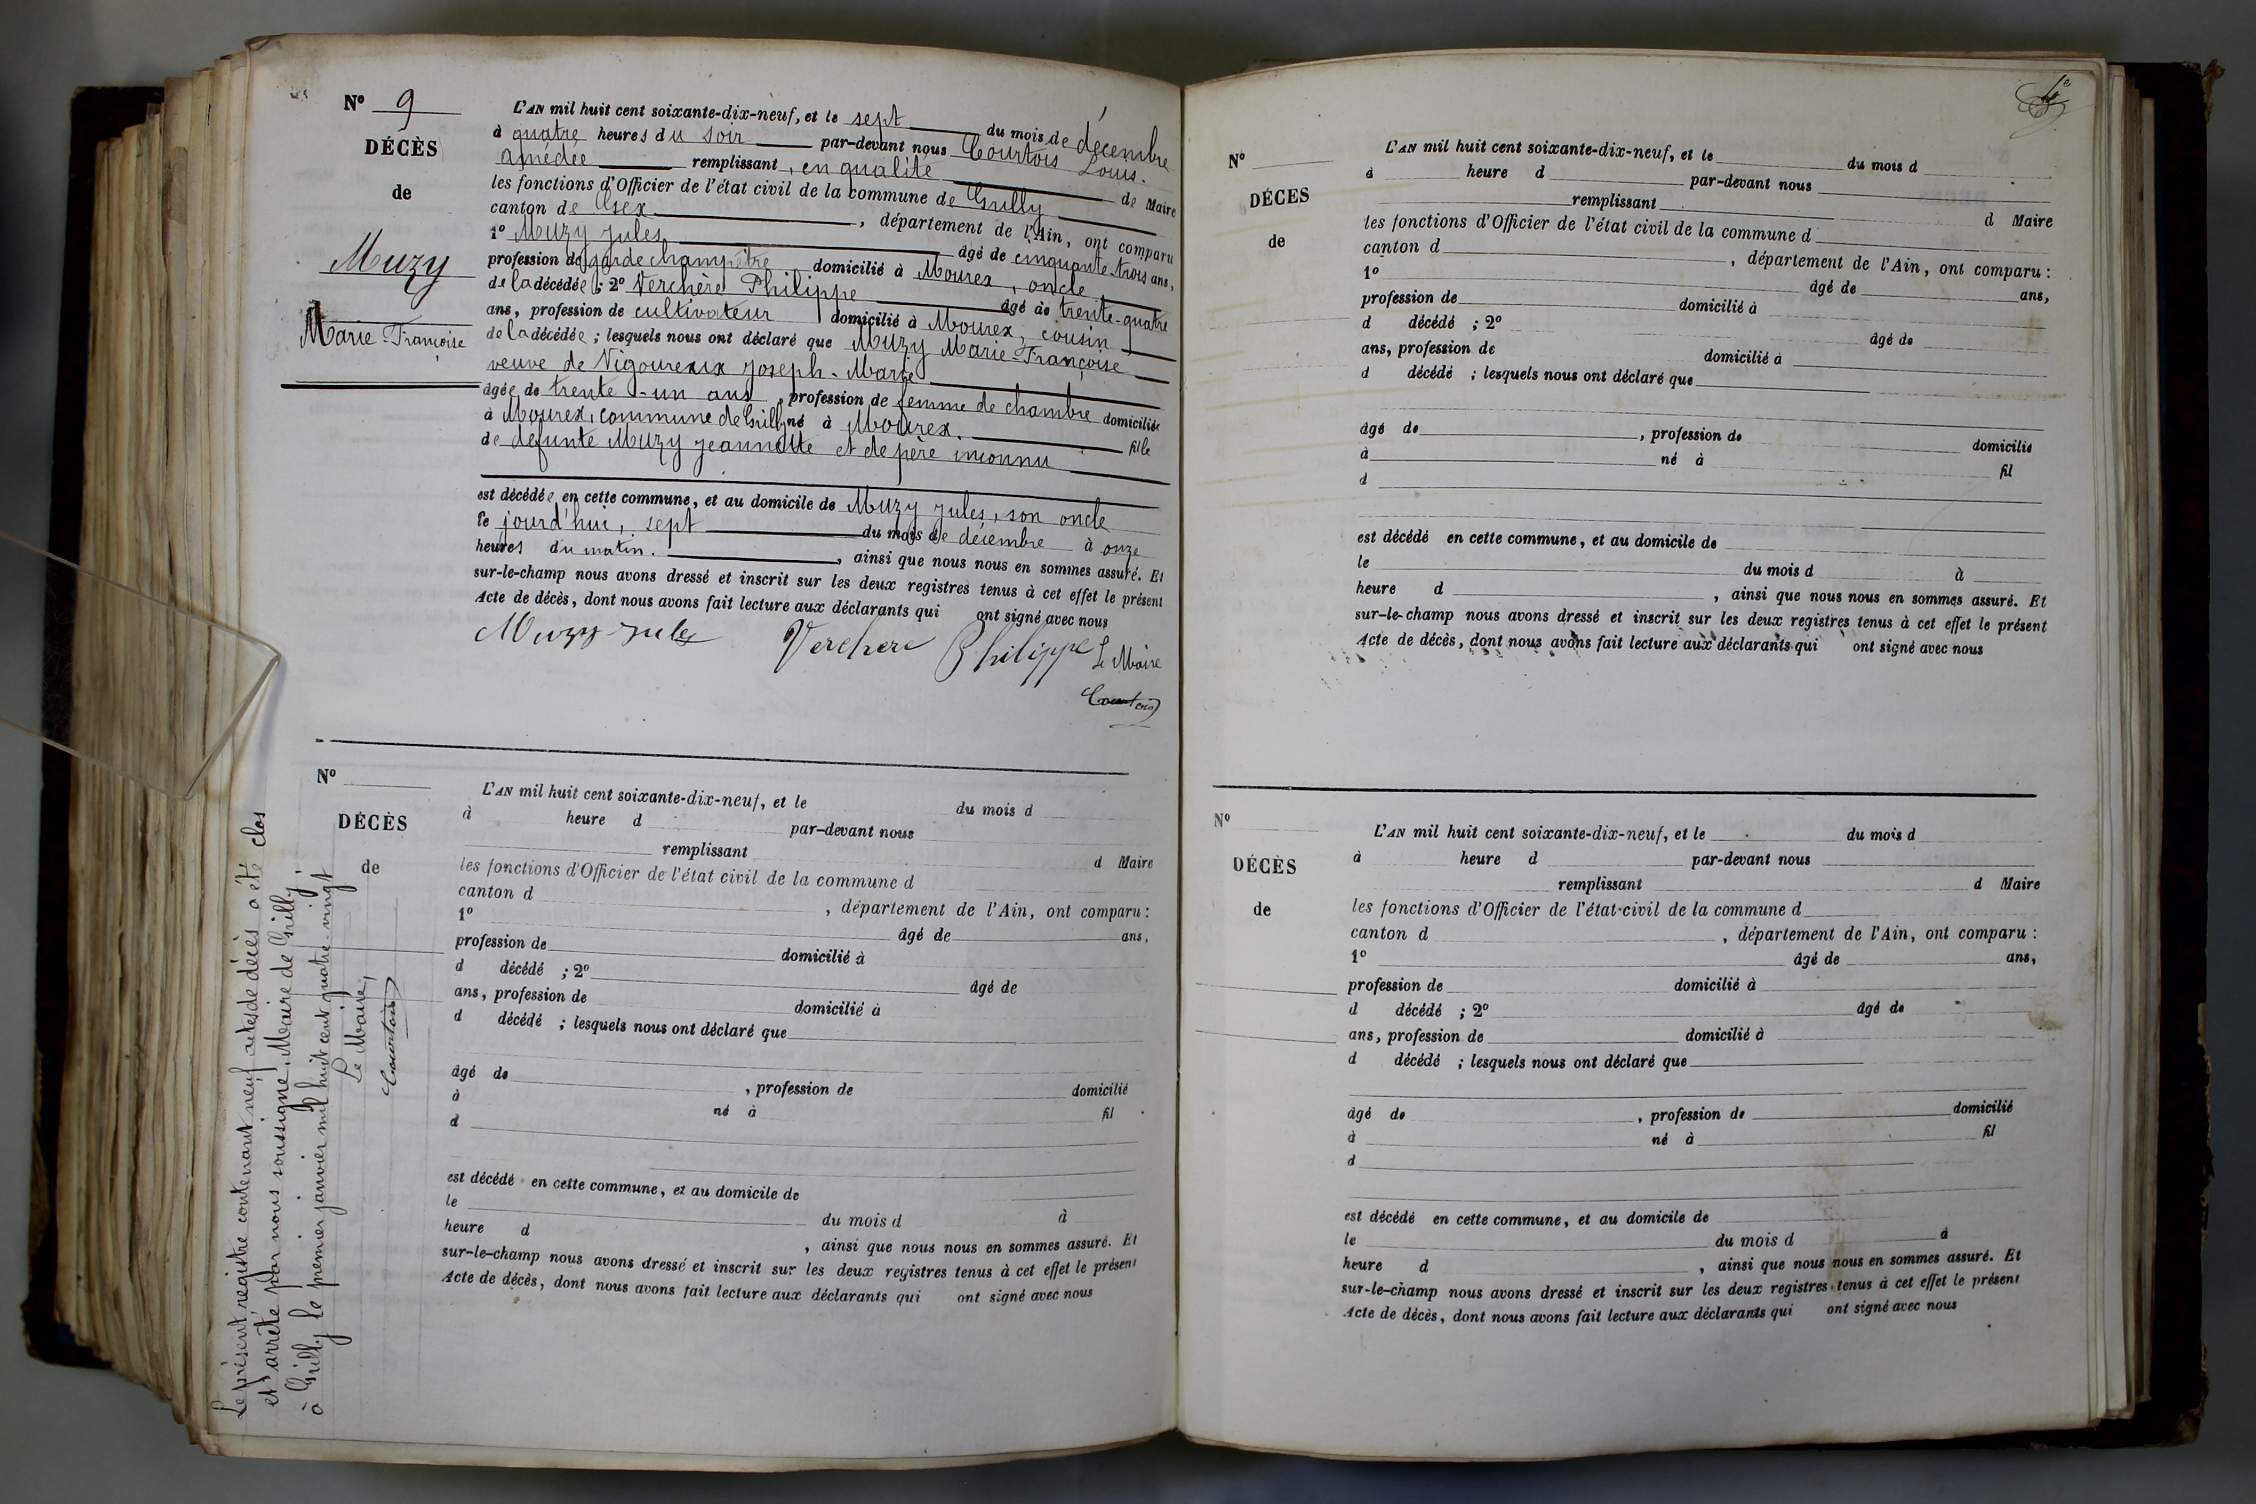 N° 9
DÉCÈS
de
Muzy
Marie Françoise
L'AN mil huit cent soixante-dix-neuf, et le sept du mois de décembre
à quatre heures du soir par-devant nous Courtois Louis.
amédée remplissant, en qualité de Maire
les fonctions d'Officier de l'état civil de la commune de Grilly
canton de Gex, département de l'Ain, ont comparu
1° Muzy Jules âgé de cinquante-trois ans,
profession de garde champêtre domicilié à Mourex, oncle
de la décédée; 2° Verchère Philippe âgé de trente-quatre
ans, profession de cultivateur domicilié à Mourex, cousin
de la décédée; lesquels nous ont déclaré que Muzy Marie-Françoise
veuve de Vigoureux Joseph-Marie
âgée de trente-un ans, profession de femme de chambre domiciliée
à Mourex, commune de Grilly né à Mourex. fille
de défunte Muzy Jeannette et de père inconnu
est décédée en cette commune, et au domicile de Muzy Jules, son oncle
le jourd'hui, sept du mois de décembre à onze
heures du matin., ainsi que nous nous en sommes assuré. Et
sur-le-champ nous avons dressé et inscrit sur les deux registres tenus à cet effet le présent
Acte de décès, dont nous avons fait lecture aux déclarants qui ont signé avec nous
Muzy Jules Verchere Philippe Le Maire
Courtois
N°
DÉCÈS
de
L'AN mil huit cent soixante-dix-neuf, et le du mois d
à heure d par-devant nous
remplissant d Maire
les fonctions d'Officier de l'état civil de la commune d
canton d , département de l'Ain, ont comparu :
1° âgé de ans,
profession de domicilié à
d décédé ; 2° âgé de
ans, profession de domicilié à
d décédé ; lesquels nous ont déclaré que
âgé de , profession de domicilié
à né à fil
d
est décédé en cette commune, et au domicile de
le du mois d à
heure d , ainsi que nous nous en sommes assuré. Et
sur-le-champ nous avons dressé et inscrit sur les deux registres tenus à cet effet le présent
Acte de décès, dont nous avons fait lecture aux déclarants qui ont signé avec nous
Le présent registre contenant neuf actes de décès a été clos
et arrêté par nous soussigné, Maire de Grilly,
à Grilly le premier janvier mil huit cent quatre-vingt
Le Maire,
Courtois
N°
DÉCES
de
L'AN mil huit cent soixante-dix-neuf, et le du mois d
à heure d par-devant nous
remplissant d Maire
les fonctions d'Officier de l'état civil de la commune d
canton d , département de l'Ain, ont comparu :
1° âgé de ans,
profession de domicilié à
d décédé ; 2° âgé de
ans, profession de domicilié à
d décédé ; lesquels nous ont déclaré que
âgé de , profession de domicilié
à né à fil
d
est décédé en cette commune, et au domicile de
le du mois d à
heure d , ainsi que nous nous en sommes assuré. Et
sur-le-champ nous avons dressé et inscrit sur les deux registres tenus à cet effet le présent
Acte de décès, dont nous avons fait lecture aux déclarants qui ont signé avec nous
N°
DÉCÈS
de
L'AN mil huit cent soixante-dix-neuf, et le du mois d
à heure d par-devant nous
remplissant d Maire
les fonctions d'Officier de l'état-civil de la commune d
canton d , département de l'Ain, ont comparu :
1° âgé de ans,
profession de domicilié à
d décédé ; 2° âgé de
ans, profession de domicilié à
d décédé ; lesquels nous ont déclaré que
âgé de , profession de domicilié
à né à fil
d
est décédé en cette commune, et au domicile de
le du mois d à
heure d , ainsi que nous nous en sommes assuré. Et
sur-le-champ nous avons dressé et inscrit sur les deux registres tenus à cet effet le présent
Acte de décès, dont nous avons fait lecture aux déclarants qui ont signé avec nous